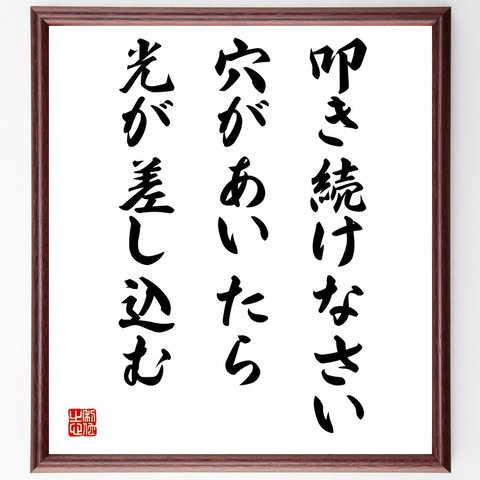 叩き続けなさい
穴があいたら
光が差し込む